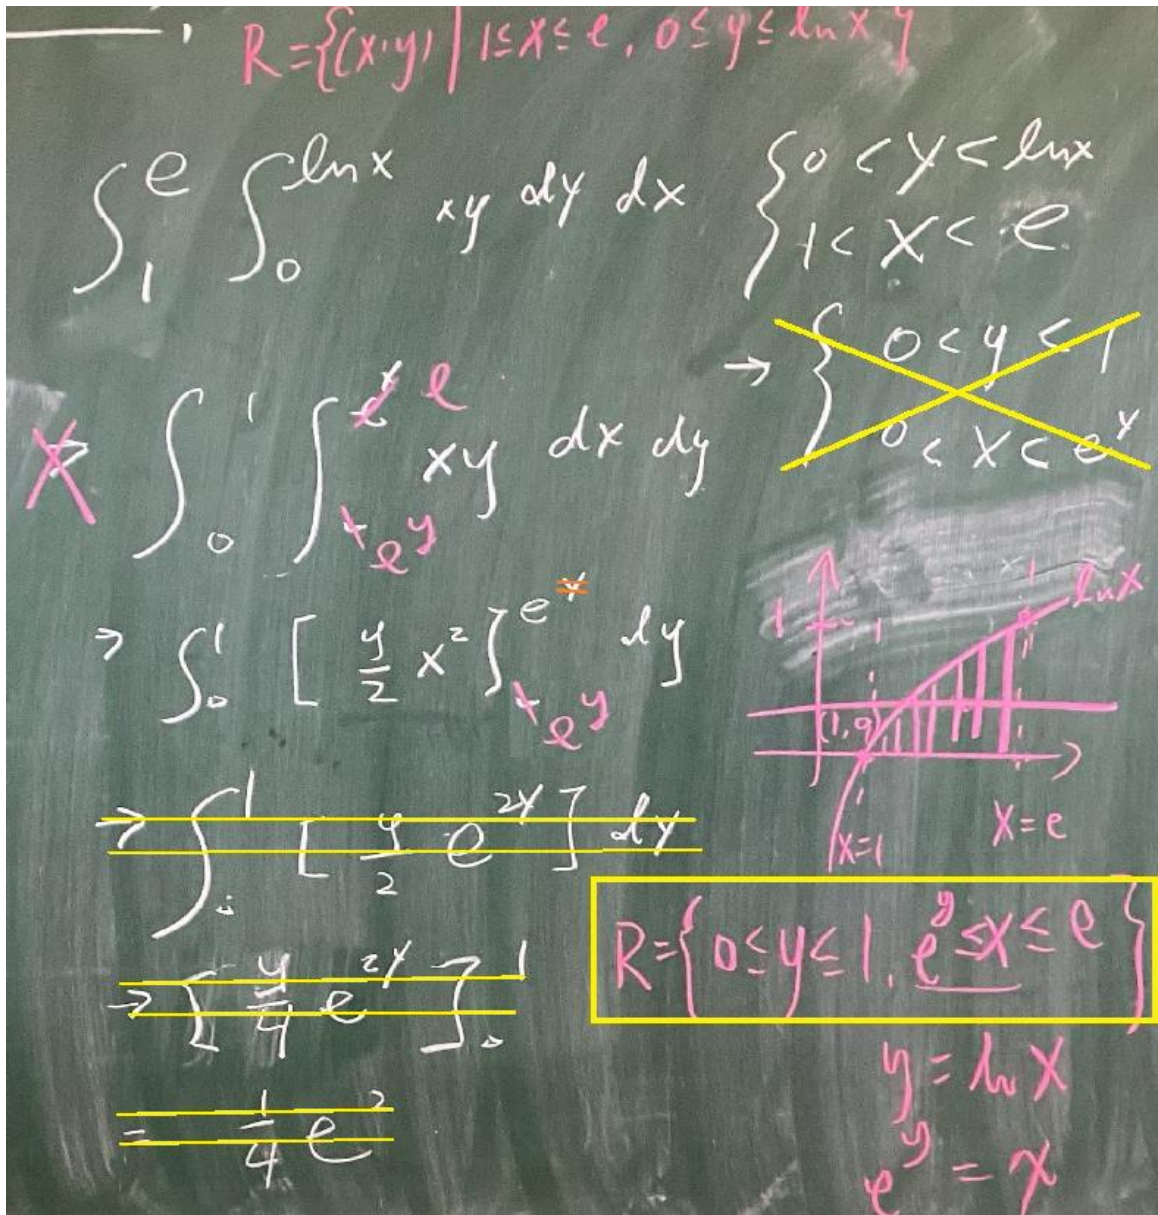 R={(x,y) | 1≤x≤e, 0≤y≤lnx}
∫₁^e ∫₀^lnx xy dy dx
{0<y<lnx
1<x<e
→ {0<y<1
0<x<e^y
⇒ ∫₀^1 ∫_{e^y}^e xy dx dy
→ ∫₀^1 [y/2 x²]_{e^y}^e dy
→ ∫₀^1 [y/2 e^{2y}] dy
→ [y/4 e^{2y}]₀^1
= 1/4 e²
1
lnx
(1,0)
x=1
x=e
R={0≤y≤1, e^y≤x≤e}
y=lnx
e^y=x